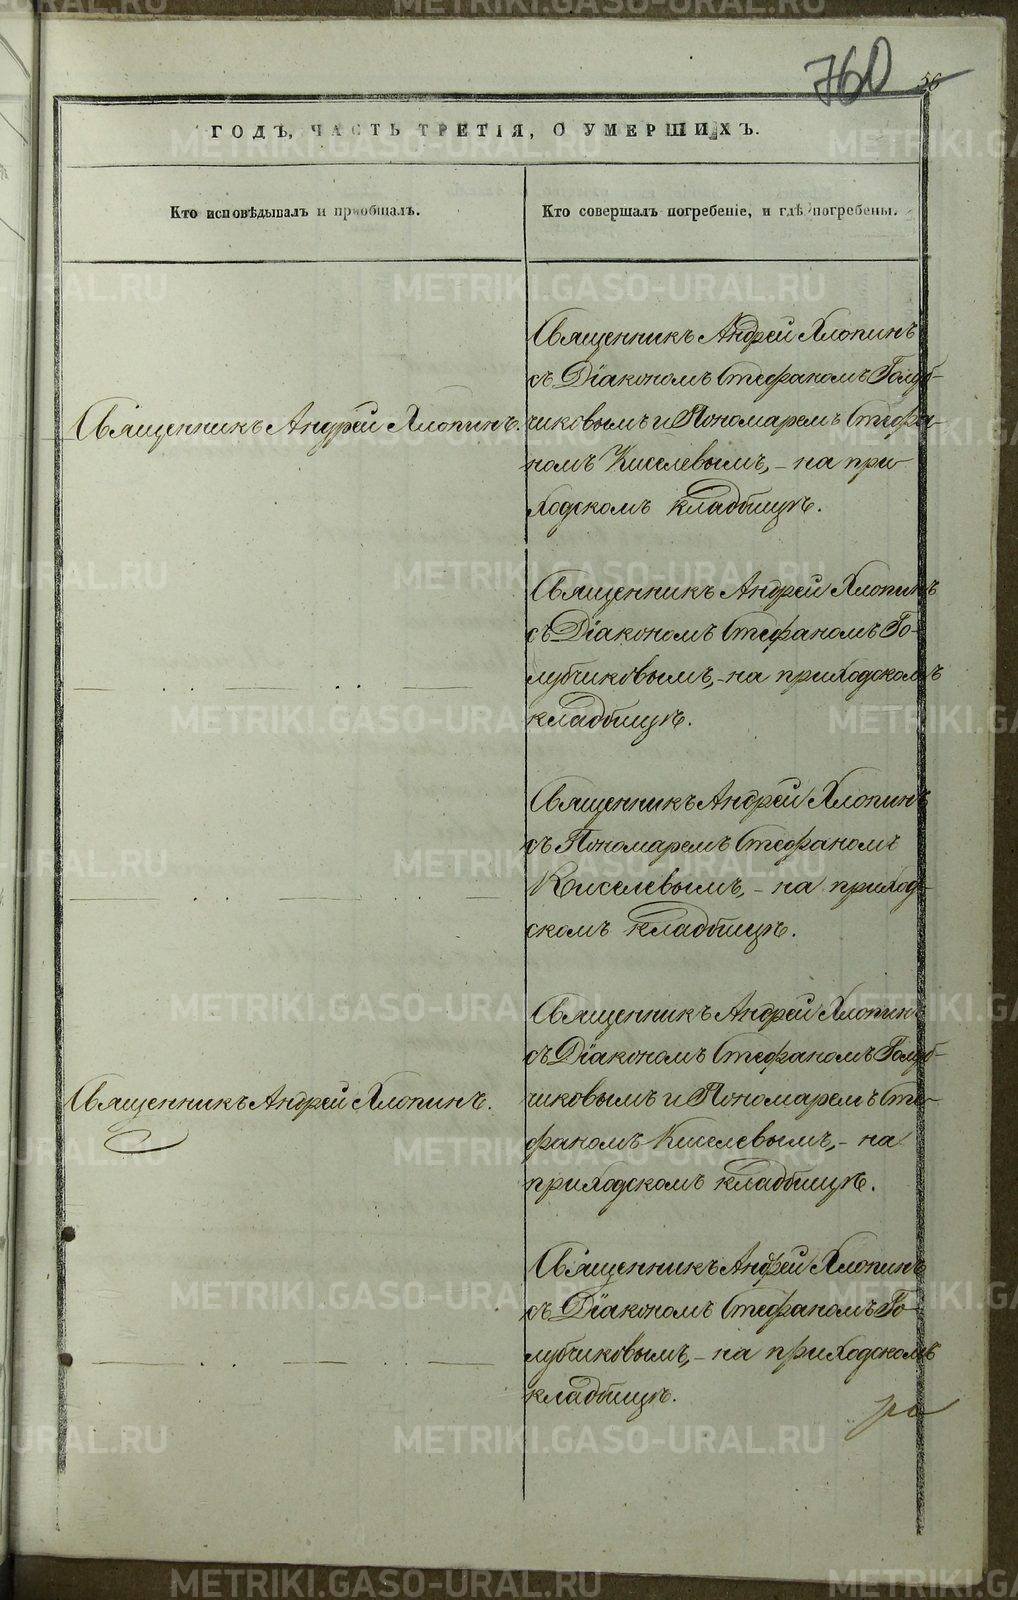 760
56
ГОДЪ, ЧАСТЬ ТРЕТІЯ, О УМЕРШИХЪ.
Кто исповѣдывалъ и пріобщалъ.
Кто совершалъ погребеніе, и гдѣ погребены.
Священникъ Андрей Хлопинъ.
Священникъ Андрей Хлопинъ
съ Діакономъ Стефаномъ Голуб-
чиковымъ и Пономаремъ Стефа-
номъ Киселевымъ, – на при-
ходскомъ кладбищѣ.
Священникъ Андрей Хлопинъ
съ Діакономъ Стефаномъ Го-
лубчиковымъ, – на приходскомъ
кладбищѣ.
Священникъ Андрей Хлопинъ
съ Пономаремъ Стефаномъ
Киселевымъ, – на приход-
скомъ кладбищѣ.
Священникъ Андрей Хлопинъ.
Священникъ Андрей Хлопинъ
съ Діакономъ Стефаномъ Голуб-
чиковымъ и Пономаремъ Сте-
фаномъ Киселевымъ, – на
приходскомъ кладбищѣ.
Священникъ Андрей Хлопинъ
съ Діакономъ Стефаномъ Го-
лубчиковымъ, – на приходскомъ
кладбищѣ.
METRIKI.GASO-URAL.RU